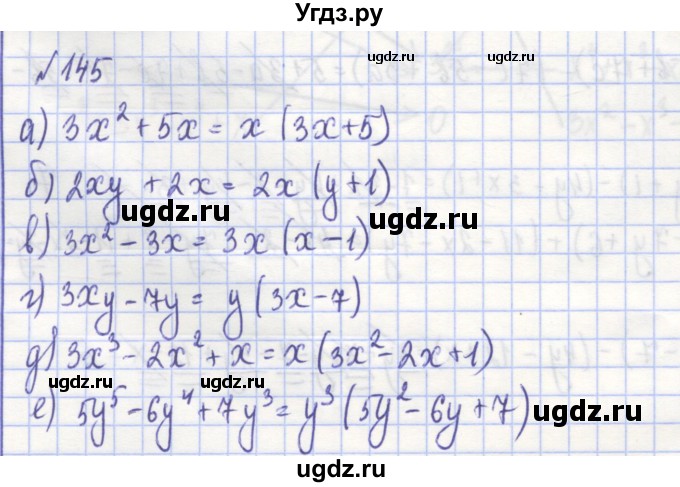 Угдз.ру
№145
ugdz.ru ugdz.ru
а) 3x² + 5x = x (3x+5)
б) 2xy + 2x = 2x (y+1)
ugdz.ru ugdz.ru
в) 3x² - 3x = 3x (x-1)
г) 3xy - 7y = y (3x-7)
ugdz.ru
д) 3x³ - 2x² + x = x (3x² - 2x + 1)
ugdz.ru ugdz.ru
е) 5y⁵ - 6y⁴ + 7y³ = y³ (5y² - 6y + 7)
ugdz.ru
ugdz.ru